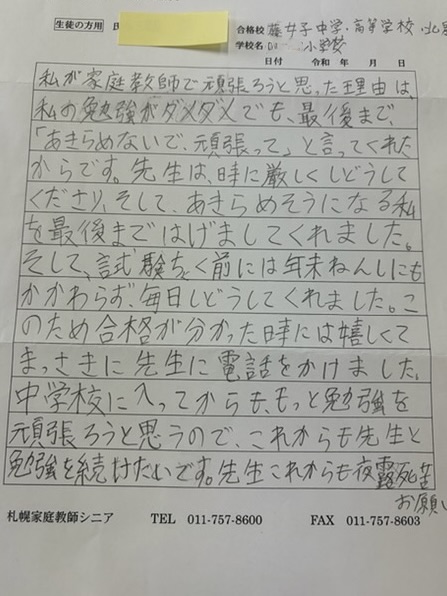 生徒の方用
合格校 藤女子中学・高等学校・北星
学校名 小学校
日付 令和 年 月 日
私が家庭教師で頑張ろうと思った理由は、
私の勉強がダメダメでも、最後まで、
「あきらめないで、頑張って」と言ってくれた
からです。先生は、時に厳しくしどうして
くださり、そして、あきらめそうになる私
を最後まではげましてくれました。
そして、試験ちょく前には年末ねんしにも
かかわらず、毎日しどうしてくれました。こ
のため合格が分かった時には嬉しくて
まっさきに先生に電話をかけました。
中学校に入ってからも、もっと勉強を
頑張ろうと思うので、これからも先生と
勉強を続けたいです。先生これからも夜露死苦
お願い
札幌家庭教師シニア TEL 011-757-8600 FAX 011-757-8603